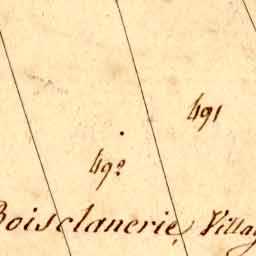 491
490
Boisclanerie, Villag